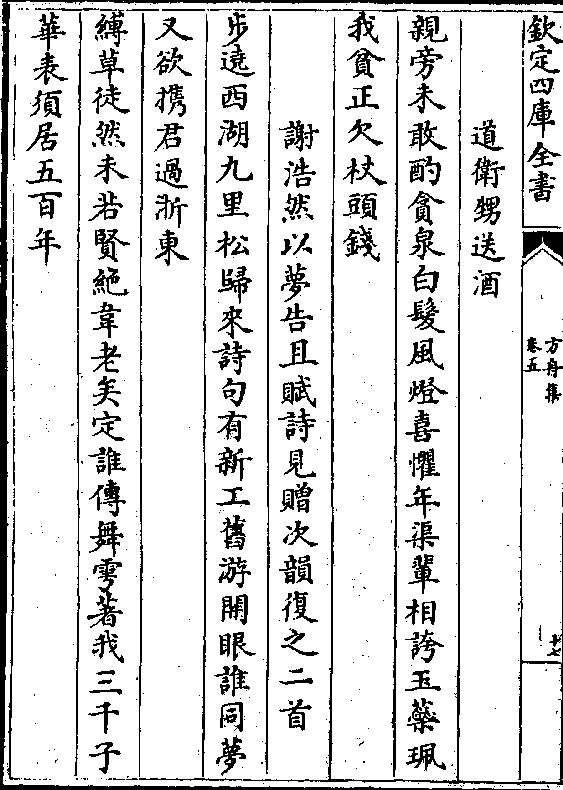 欽定四庫全書
方舟集
卷五
十七
道衛甥送酒
親旁未敢酌貪泉白髮風燈喜懼年渠輩相誇玉蘂珮
我貧正欠杖頭錢
謝浩然以夢告且賦詩見贈次韻復之二首
步遶西湖九里松歸來詩句有新工舊游開眼誰同夢
又欲携君過浙東
縛草徒然未若賢絶韋老矣定誰傳舞雩著我三千子
華表須居五百年